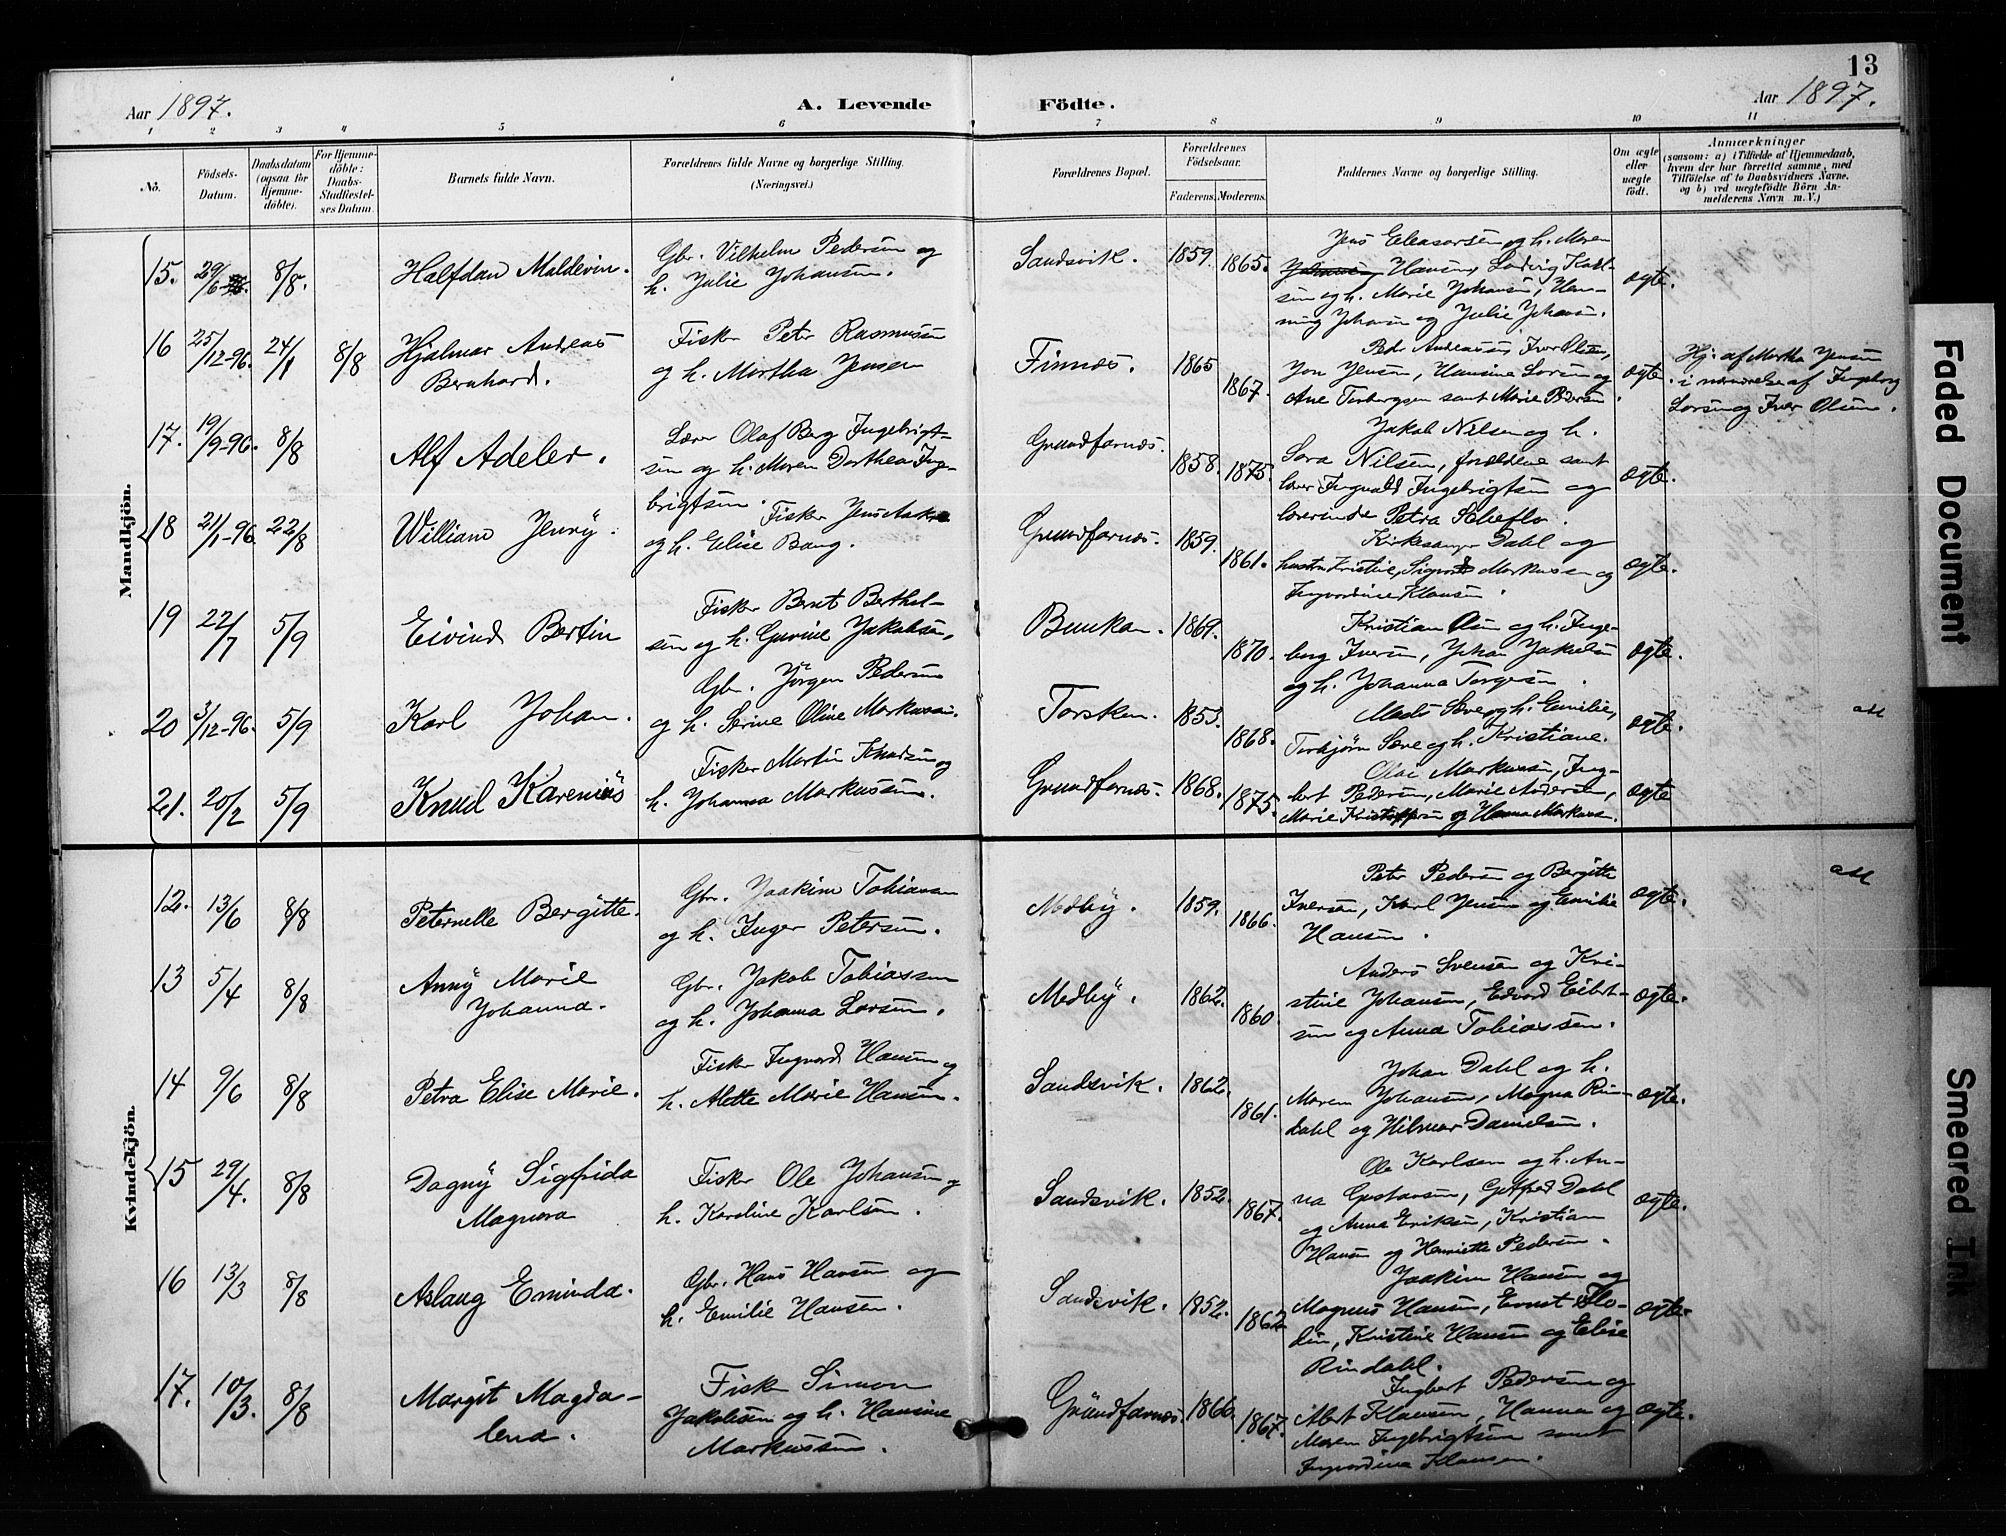 13
Aar 1897.
A. Levende
Födte.
Aar 1897.
1 2 3 4 5 6 7 8 9 10 11
No.
Födsels-
Datum.
Daabsdatum
(ogsaa for
Hjemme-
döbte).
For Hjemme-
döbte:
Daabs-
Stadfæstel-
ses Datum.
Barnets fulde Navn.
Forældrenes fulde Navne og borgerlige Stilling.
(Næringsvei.)
Forældrenes Bopæl.
Forældrenes
Födselsaar.
Faderens. Moderens.
Faddernes Navne og borgerlige Stilling.
Om ægte
eller
uægte
födt.
Anmærkninger
(saasom: a) i Tilfælde af Hjemmedaab,
hvem der har forrettet samme, med
Tilföielse af to Daabsvidners Navne,
og b) ved uægtefödte Börn An-
melderens Navn m. V.)
Mandkjön.
15. 29/6 8/8. Halfdan Maldevin.
Gbr. Vilhelm Pedersen og
h. Julie Johansen.
Sandsvik. 1859. 1865.
Jens Eleasarsen og h. Maren
Hansen, Ludvig Karl-
sen og h. Marie Johansen, Hen-
ning Johansen og Julie Johansen.
ægte.
16 25/12-96. 24/1 8/8 Hjalmar Andreas
Bernhard.
Fisker Peter Rasmussen
og h. Martha Jensen
Finnæs. 1865 1867.
Peder Andreassen, Iver Olsen,
Jon Jensen, Hansine Larsen og
Ane Torbergsen samt Marie Pedersen.
ægte.
Hj. af Martha Jensen
i nærværelse af Ingeborg
Larsen og Iver Olsen.
17. 19/9-96. 8/8 Alf Adeler.
Lærer Olaf Berg Ingebrigt-
sen og h. Maren Dorthea Inge-
brigtsen.
Grundfarnæs. 1858. 1875.
Jakob Nilsen og h.
Sara Nilsen, forældrene samt
lærer Ingvald Ingebrigtsen og
lærerinde Petra
ægte.
18 21/1-96. 22/8 William Jenry.
Fisker Jens
og h. Elise Bang.
Grundfarnæs. 1859. 1861.
Kirkesanger Dahl og
hustru Kristine, Sigvard Markussen og
Ingvardine Klausen.
ægte.
19 22/7 5/9 Eivind Bertin
Fisker Bernt Berthel-
sen og h. Gurine Jakobsen,
Bunkan. 1869. 1870.
Kristian Olsen og h. Inge-
borg Iversen, Johan Jakobsen
og h. Johanna Torgersen.
ægte.
20 3/12-96. 5/9 Karl Johan.
Gbr. Jörgen Pedersen
og h. Serine Oline Markussen.
Torsken. 1853. 1868.
Mads Sæve og h. Emilie,
Torbjörn Sæve og h. Kristiane.
ægte.
att
21. 20/2 5/9 Knud Kareniüs
Fisker Martin Knudsen og
h. Johanna Markussen.
Grundfarnæs. 1868. 1875.
Olai Markussen, Ing-
bert Pedersen, Marie Andersen,
Marie Kristoffersen og Hanna Markussen.
ægte
Kvindekjön.
12. 13/6 8/8 Peternelle Bergitte.
Gbr. Joakim Tobiassen
og h. Inger Petersen.
Medby. 1859. 1866.
Peter Pedersen og Bergitte
Iversen, Karl Jensen og Emilie
Hansen.
ægte.
att
13 5/4 8/8 Anny Marie
Johanna.
Gbr. Jakob Tobiassen
og h. Johanna Larsen.
Medby. 1862. 1860.
Anders Svensen og Kri-
stine Johansen, Edvard Eilert-
sen og Anna Tobiassen.
ægte.
14 9/6 8/8 Petra Elise Marie.
Fisker Ingvard Hansen og
h. Alette Marie Hansen.
Sandsvik. 1862. 1861.
Johan Dahl og h.
Maren Johansen, Magna Rin-
dahl og Hilmar Danielsen.
ægte.
15 29/4. 8/8 Dagny Sigfrida
Magnora
Fisker Ole Johansen og
h. Karoline Karlsen.
Sandsvik. 1852. 1867.
Ole Karlsen og h. An-
na Gustavsen, Gotfred Dahl
og Anna Eriksen, Kristian
Hansen og Henriette Pedersen.
ægte.
16 13/3 8/8 Aslaug Eminda.
Gbr. Hans Hansen og
h. Emilie Hansen.
Sandsvik. 1852. 1862
Joakim Hansen og
Magnus Hansen, Ernst Flo-
din, Kristine Hansen og Elise
Rindahl.
ægte.
17. 10/3. 8/8 Margit Magda-
lena.
Fisker Simon
Jakobsen og h. Hansine
Markussen.
Gründfarnæs. 1866. 1867.
Ingbert Pedersen og
Albert Klausen, Hanna og
Maren Ingebrigtsen samt
Ingvardine Klausen.
ægte.
Faded Document
Smeared Ink